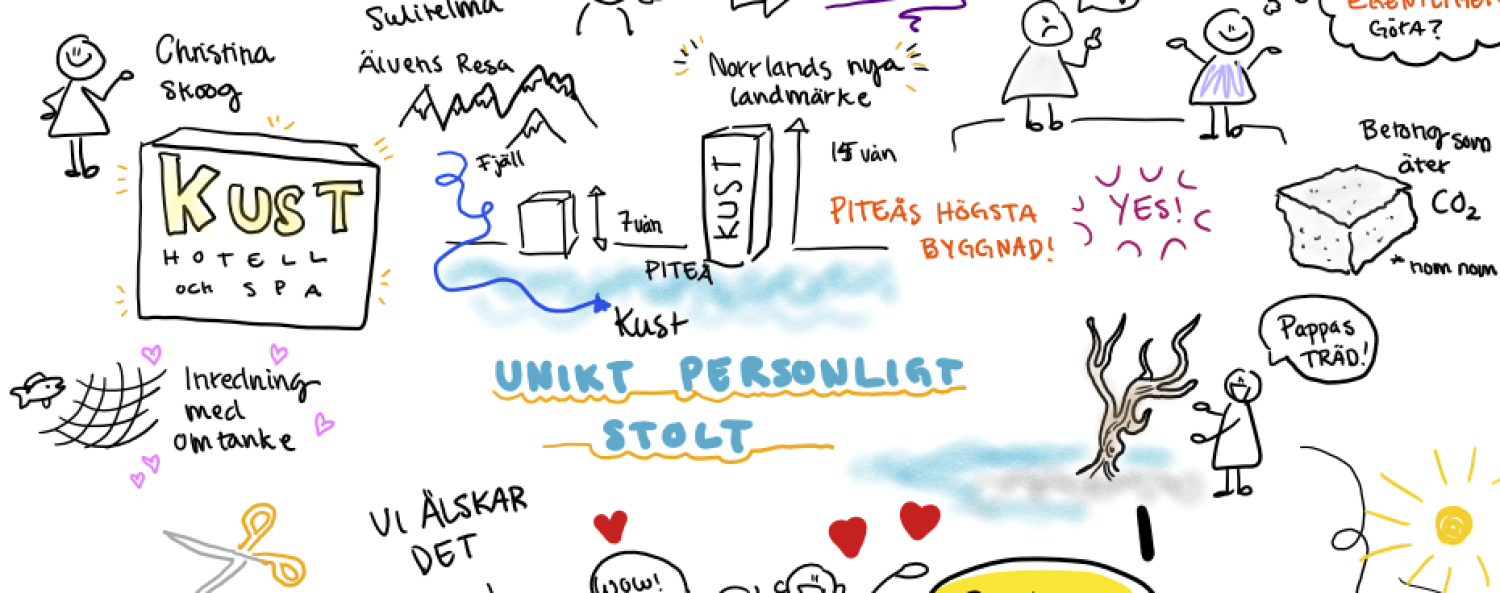 Sulitelma
Christina
Skoog
Älvens Resa
Norrlands nya
landmärke
GÖRA?
KUST
HOTELL
och SPA
Fjäll
7 vån
KUST
15 vån
PITEÅ
Kust
PITEÅS HÖGSTA
BYGGNAD!
YES!
Betong som
äter
CO2
* nom nom
Inredning
med
omtanke
UNIKT PERSONLIGT
STOLT
Pappas
TRÄD!
VI ÄLSKAR
DET
WOW!